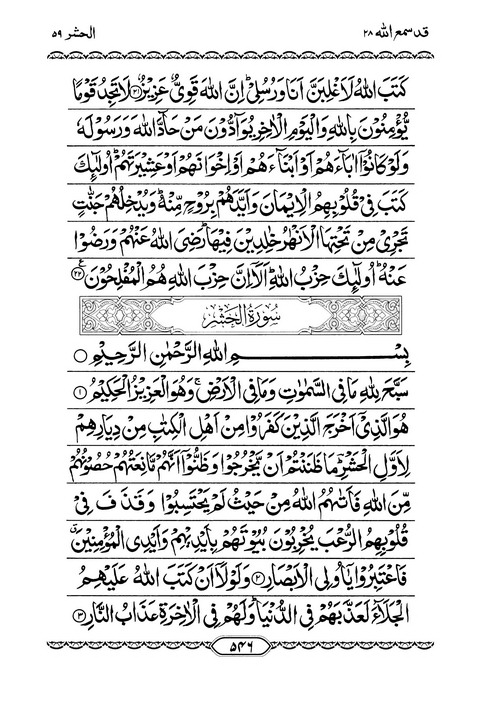 قد سمع الله ٢٨
الحشر ٥٩
كَتَبَ اللّٰهُ لَاَغْلِبَنَّ اَنَا وَرُسُلِیْ ؕ اِنَّ اللّٰهَ قَوِیٌّ عَزِیْزٌ ﴿۲۱﴾ لَا تَجِدُ قَوْمًا
یُّؤْمِنُوْنَ بِاللّٰهِ وَالْیَوْمِ الْاٰخِرِ یُوَآدُّوْنَ مَنْ حَآدَّ اللّٰهَ وَرَسُوْلَهٗ
وَلَوْ كَانُوْۤا اٰبَآءَهُمْ اَوْ اَبْنَآءَهُمْ اَوْ اِخْوَانَهُمْ اَوْ عَشِیْرَتَهُمْ ؕ اُولٰٓىِٕكَ
كَتَبَ فِیْ قُلُوْبِهِمُ الْاِیْمَانَ وَاَیَّدَهُمْ بِرُوْحٍ مِّنْهُ ؕ وَیُدْخِلُهُمْ جَنّٰتٍ
تَجْرِیْ مِنْ تَحْتِهَا الْاَنْهٰرُ خٰلِدِیْنَ فِیْهَا ؕ رَضِیَ اللّٰهُ عَنْهُمْ وَرَضُوْا
عَنْهُ ؕ اُولٰٓىِٕكَ حِزْبُ اللّٰهِ ؕ اَلَاۤ اِنَّ حِزْبَ اللّٰهِ هُمُ الْمُفْلِحُوْنَ ﴿۲۲﴾ ع
سُوْرَةُ الْحَشْرِ
بِسْمِ اللّٰهِ الرَّحْمٰنِ الرَّحِیْمِ ○
سَبَّحَ لِلّٰهِ مَا فِی السَّمٰوٰتِ وَمَا فِی الْاَرْضِ ۚ وَهُوَ الْعَزِیْزُ الْحَكِیْمُ ﴿۱﴾
هُوَ الَّذِیْۤ اَخْرَجَ الَّذِیْنَ كَفَرُوْا مِنْ اَهْلِ الْكِتٰبِ مِنْ دِیَارِهِمْ
لِاَوَّلِ الْحَشْرِ ؕ مَا ظَنَنْتُمْ اَنْ یَّخْرُجُوْا وَظَنُّوْۤا اَنَّهُمْ مَّانِعَتُهُمْ حُصُوْنُهُمْ
مِّنَ اللّٰهِ فَاَتٰىهُمُ اللّٰهُ مِنْ حَیْثُ لَمْ یَحْتَسِبُوْا وَقَذَفَ فِیْ
قُلُوْبِهِمُ الرُّعْبَ یُخْرِبُوْنَ بُیُوْتَهُمْ بِاَیْدِیْهِمْ وَاَیْدِی الْمُؤْمِنِیْنَ ۗ
فَاعْتَبِرُوْا یٰۤاُولِی الْاَبْصَارِ ﴿۲﴾ وَلَوْلَاۤ اَنْ كَتَبَ اللّٰهُ عَلَیْهِمُ
الْجَلَآءَ لَعَذَّبَهُمْ فِی الدُّنْیَا ؕ وَلَهُمْ فِی الْاٰخِرَةِ عَذَابُ النَّارِ ﴿۳﴾
۵۴۶